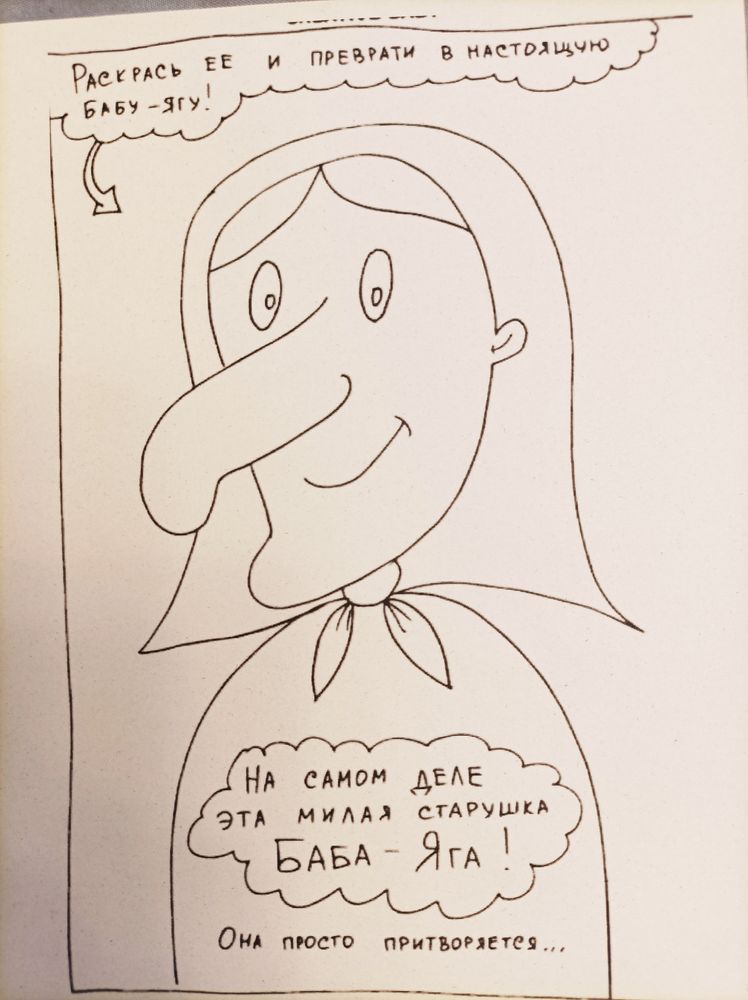 Раскрась ее и преврати в настоящую
бабу-ягу!
На самом деле
эта милая старушка
Баба-Яга!
Она просто притворяется...